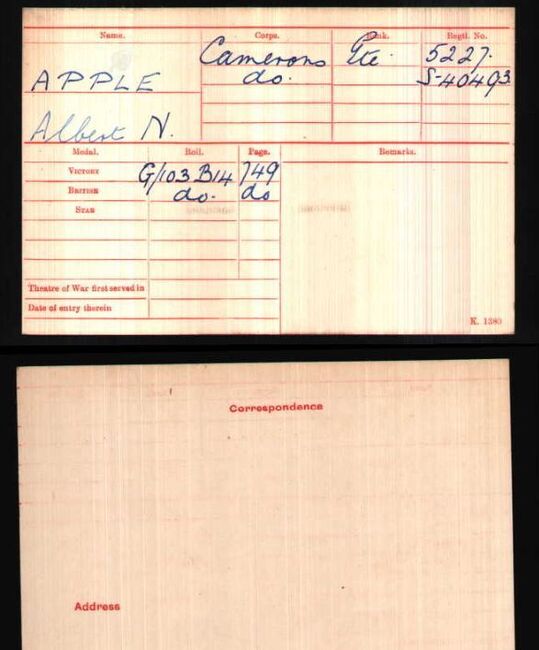 Name. Corps. Rank. Regtl. No.
Camerons Pte. 5227.
APPLE do. S-40493
Albert N.
Medal. Roll. Page. Remarks.
VICTORY G/103 B14 749
BRITISH do. do
STAR
Theatre of War first served in
Date of entry therein
K. 1380
Correspondence
Address